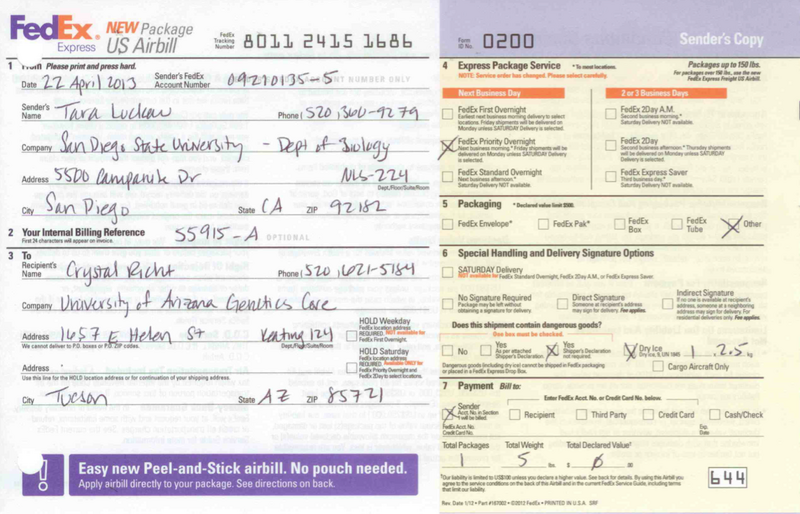 FedEx Express NEW Package US Airbill
FedEx Tracking Number 8011 2415 1686
Form ID No. 0200
Sender's Copy
1 From Please print and press hard.
Date 22 April 2013 Sender's FedEx Account Number 09210135-5
Sender's Name Tara Luckau Phone (520) 360-9279
Company San Diego State University - Dept of Biology
Address 5500 Campanile Dr NLS-224
Dept./Floor/Suite/Room
City San Diego State CA ZIP 92182
2 Your Internal Billing Reference 55915-A OPTIONAL
First 24 characters will appear on invoice.
3 To
Recipient's Name Crystal Richt Phone (520) 621-5184
Company University of Arizona Genetics Core
Address 1657 E Helen St Keating 124
We cannot deliver to P.O. boxes or P.O. ZIP codes. Dept./Floor/Suite/Room
HOLD Weekday
FedEx location address
REQUIRED. NOT available for
FedEx First Overnight.
HOLD Saturday
FedEx location address
REQUIRED. Available ONLY for
FedEx Priority Overnight and
FedEx 2Day to select locations.
Address
Use this line for the HOLD location address or for continuation of your shipping address.
City Tucson State AZ ZIP 85721
Easy new Peel-and-Stick airbill. No pouch needed.
Apply airbill directly to your package. See directions on back.
4 Express Package Service * To most locations.
NOTE: Service order has changed. Please select carefully.
Packages up to 150 lbs.
For packages over 150 lbs., use the new
FedEx Express Freight US Airbill.
Next Business Day
FedEx First Overnight
Earliest next business morning delivery to select
locations. Friday shipments will be delivered on
Monday unless SATURDAY Delivery is selected.
FedEx Priority Overnight
Next business morning.* Friday shipments will be
delivered on Monday unless SATURDAY Delivery
is selected.
FedEx Standard Overnight
Next business afternoon.*
Saturday Delivery NOT available.
2 or 3 Business Days
FedEx 2Day A.M.
Second business morning.*
Saturday Delivery NOT available.
FedEx 2Day
Second business afternoon.* Thursday shipments
will be delivered on Monday unless SATURDAY
Delivery is selected.
FedEx Express Saver
Third business day.*
Saturday Delivery NOT available.
5 Packaging * Declared value limit $500.
FedEx Envelope* FedEx Pak* FedEx Box FedEx Tube Other
6 Special Handling and Delivery Signature Options
SATURDAY Delivery
NOT available for FedEx Standard Overnight, FedEx 2Day A.M., or FedEx Express Saver.
No Signature Required
Package may be left without
obtaining a signature for delivery.
Direct Signature
Someone at recipient's address
may sign for delivery. Fee applies.
Indirect Signature
If no one is available at recipient's
address, someone at a neighboring
address may sign for delivery. For
residential deliveries only. Fee applies.
Does this shipment contain dangerous goods?
One box must be checked.
No
Yes
As per attached
Shipper's Declaration.
Yes
Shipper's Declaration
not required.
Dry Ice
Dry Ice, 9, UN 1845 1 2.5 kg
Dangerous goods (including dry ice) cannot be shipped in FedEx packaging
or placed in a FedEx Express Drop Box.
Cargo Aircraft Only
7 Payment Bill to:
Enter FedEx Acct. No. or Credit Card No. below.
Sender
Acct. No. in Section
1 will be billed.
Recipient Third Party Credit Card Cash/Check
FedEx Acct. No.
Credit Card No.
Exp.
Date
Total Packages Total Weight Total Declared Value†
1 5 lbs. $ 0 .00
†Our liability is limited to US$100 unless you declare a higher value. See back for details. By using this Airbill you
agree to the service conditions on the back of this Airbill and in the current FedEx Service Guide, including terms
that limit our liability.
644
Rev. Date 1/12 • Part #167002 • ©2012 FedEx • PRINTED IN U.S.A. SRF